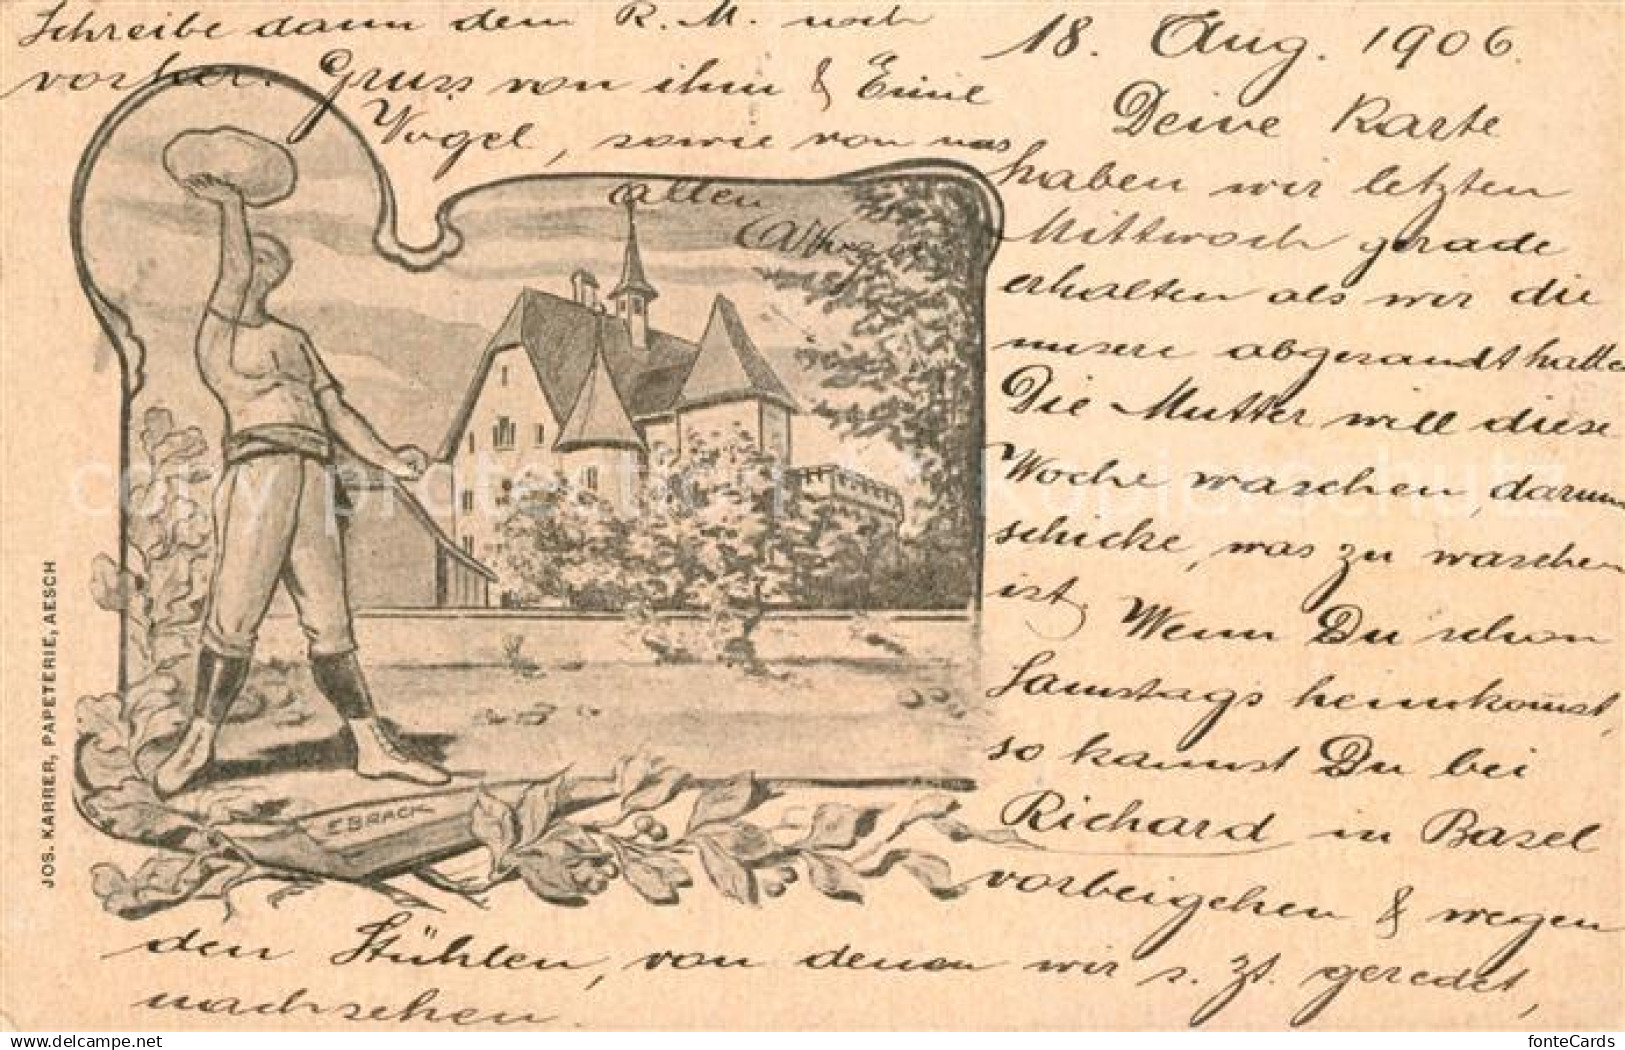 18. Aug. 1906.
Deine Karte
haben wir letzten
Mittwoch gerade
erhalten als wir die
unsere abgesandt hatten
Die Mutter will diese
Woche waschen, darum
schicke, was zu waschen
ist. Wenn Du schon
Samstags heimkommst,
so kannst Du bei
Richard in Basel
vorbeigehen & wegen
den Stühlen, von denen wir s. Zt. geredet,
nachsehen.
Schreibe dann dem R. M. noch
vorher. Gruss von ihm &
Vogel, sowie von uns
allen
E BRACK
JOS. KARRER, PAPETERIE, AESCH
copy protected / Kopierschutz
oldthing.net
fonteCards